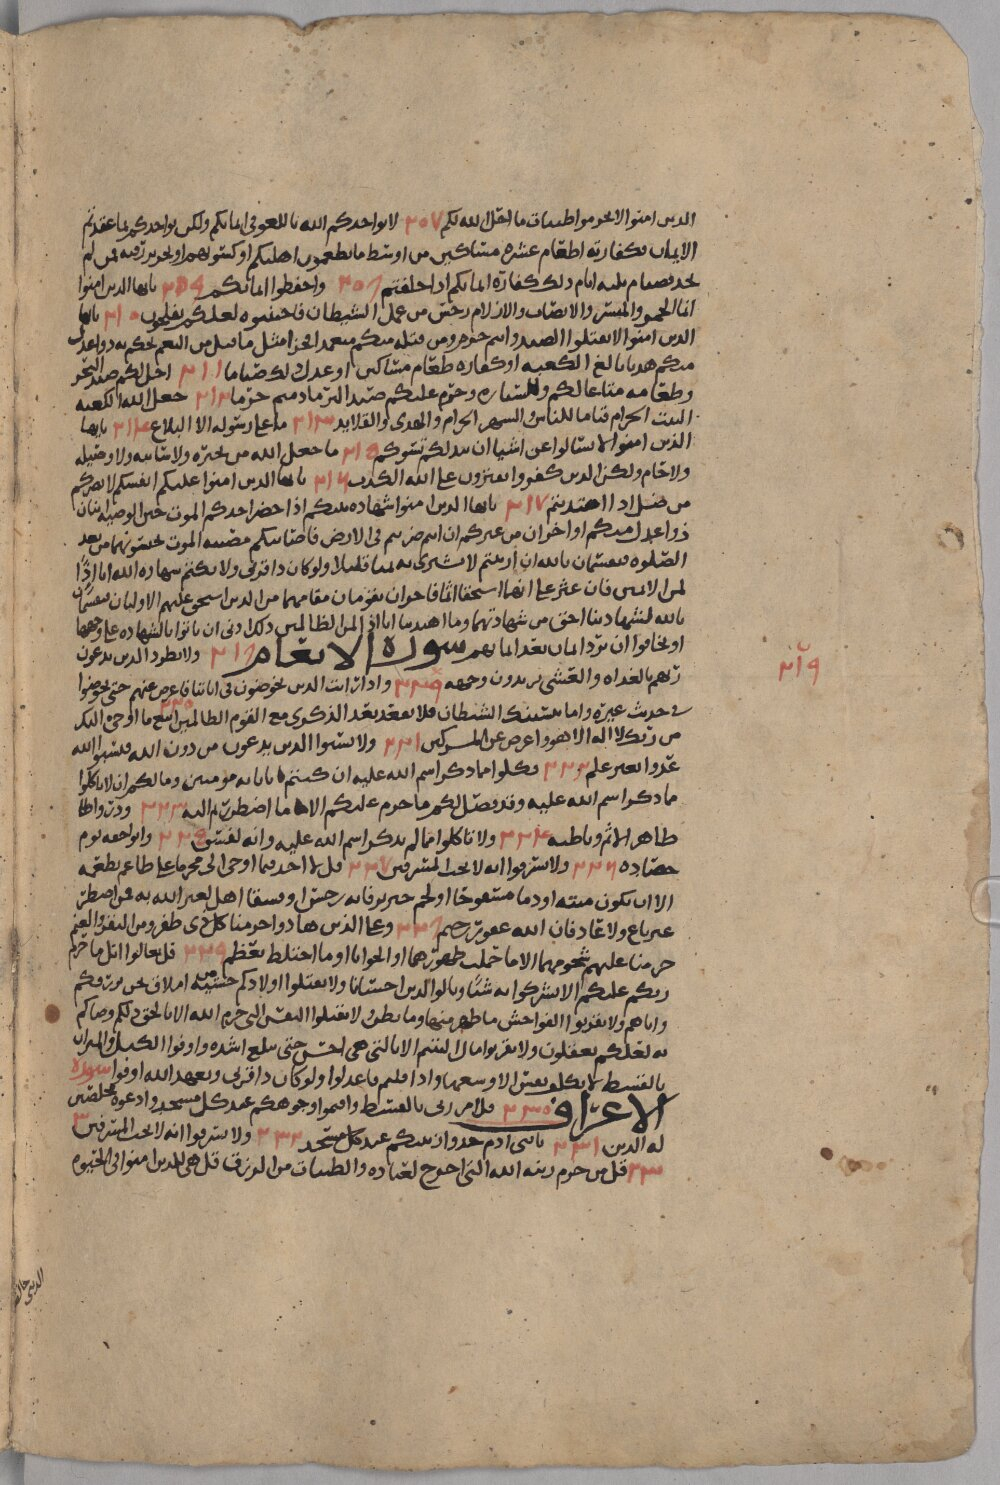 الذين امنوا لا تحرموا طيبات ما احل الله لكم ٢٠٧ لا يواخدكم الله باللغو في ايمانكم ولكن يواخدكم بما عقدتم
الايمان فكفارته اطعام عشره مساكين من اوسط ما تطعمون اهليكم او كسوتهم او تحرير رقبه فمن لم
يجد فصيام ثلثه ايام ذلك كفارة ايمانكم اذا حلفتم ٢٠٨ واحفظوا ايمانكم ٢٠٩ يايها الذين امنوا
انما الخمر والميسر والانصاب والازلام رجس من عمل الشيطان فاجتنبوه لعلكم تفلحون ٢١٠ يايها
الذين امنوا لا تقتلوا الصيد وانتم حرم ومن قتله منكم متعمدا فجزا مثل ما قتل من النعم يحكم به ذوا عدل
منكم هديا بالغ الكعبه او كفاره طعام مساكين او عدل ذلك صياما ٢١١ احل لكم صيد البحر
وطعامه متاعا لكم وللسياره وحرم عليكم صيد البر ما دمتم حرما ٢١٢ جعل الله الكعبه
البيت الحرام قياما للناس والشهر الحرام والهدى والقلايد ٢١٣ ما على رسوله الا البلاغ ٢١٤ يايها
الذين امنوا لا تسالوا عن اشيا ان تبد لكم تسوكم ٢١٥ ما جعل الله من بحيره ولا سايبه ولا وصيله
ولا حام ولكن الذين كفروا يفترون على الله الكذب ٢١٦ يايها الذين امنوا عليكم انفسكم لا يضركم
من ضل اذا اهتديتم ٢١٧ يايها الذين امنوا شهاده بينكم اذا حضر احدكم الموت حين الوصيه اثنان
ذوا عدل منكم او اخران من غيركم ان انتم ضربتم في الارض فاصابتكم مصيبه الموت تحبسونهما من بعد
الصلوه فيقسمان بالله ان ارتبتم لا نشترى به ثمنا قليلا ولو كان ذا قربى ولا نكتم شهاده الله انا اذًا
لمن الاثمين فان عثر على انهما استحقا اثما فاخران يقومان مقامهما من الذين استحق عليهم الاوليان فيقسمان
بالله لشهادتنا احق من شهادتهما وما اعتدينا انا اذا لمن الظالمين ذلك ادنى ان ياتوا بالشهاده على وجهها
او يخافوا ان ترد ايمان بعد ايمانهم سورة الانعام ٢١٨ ولا تطرد الذين يدعون
ربهم بالغداه والعشى يريدون وجهه ٢١٩
٢١٩ واذا رايت الذين يخوضون في اياتنا فاعرض عنهم حتى يخوضوا
في حديث غيره واما ينسينك الشيطان فلا تقعد بعد الذكرى مع القوم الظالمين ٢٢٠ اتبع ما اوحى اليك
من ربك لا اله الا هو واعرض عن المشركين ٢٢١ ولا تسبوا الذين يدعون من دون الله فيسبوا الله
عدوا بغير علم ٢٢٢ فكلوا مما ذكر اسم الله عليه ان كنتم باياته مومنين وما لكم ان لا تاكلوا
مما ذكر اسم الله عليه وقد فصل لكم ما حرم عليكم الا ما اضطررتم اليه ٢٢٣ وذروا
ظاهر الاثم وباطنه ٢٢٤ ولا تاكلوا مما لم يذكر اسم الله عليه وانه لفسق ٢٢٥ واتوا حقه يوم
حصاده ٢٢٦ ولا تسرفوا انه لا يحب المسرفين ٢٢٧ قل لا اجد فيما اوحى الى محرما على طاعم يطعمه
الا ان يكون ميته او دما مسفوحا او لحم خنزير فانه رجس او فسقا اهل لغير الله به فمن اضطر
غير باغ ولا عاد فان الله غفور رحيم ٢٢٨ وعلى الذين هادوا حرمنا كل ذى ظفر ومن البقر والغنم
حرمنا عليهم شحومهما الا ما حملت ظهورهما او الحوايا او ما اختلط بعظم ٢٢٩ قل تعالوا اتل ما حرم
ربكم عليكم الا تشركوا به شيًا وبالوالدين احسانا ولا تقتلوا اولادكم خشيه من املاق نحن نرزقكم
واياهم ولا تقربوا الفواحش ما ظهر منها وما بطن ولا تقتلوا النفس التى حرم الله الا بالحق ذلكم وصاكم
به لعلكم تعقلون ولا تقربوا مال اليتيم الا بالتى هى احسن حتى يبلغ اشده واوفوا الكيل والميزان
بالقسط لا نكلف نفسا الا وسعها واذا قلتم فاعدلوا ولو كان ذا قربى وبعهد الله اوفوا سورة
الاعراف ٢٣٠ قل امر ربى بالقسط واقيموا وجوهكم عند كل مسجد وادعوه مخلصين
له الدين ٢٣١ يابنى ادم خذوا زينتكم عند كل مسجد ٢٣٢ ولا تسرفوا انه لا يحب المسرفين
٢٣٣ قل من حرم زينه الله التى اخرج لعباده والطيبات من الرزق قل هى للذين امنوا في الحيوه